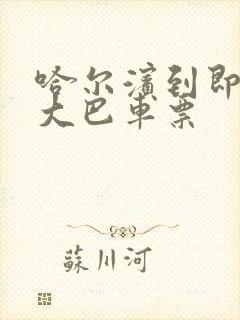 哈尔滨到即
大巴车票
蘇川河